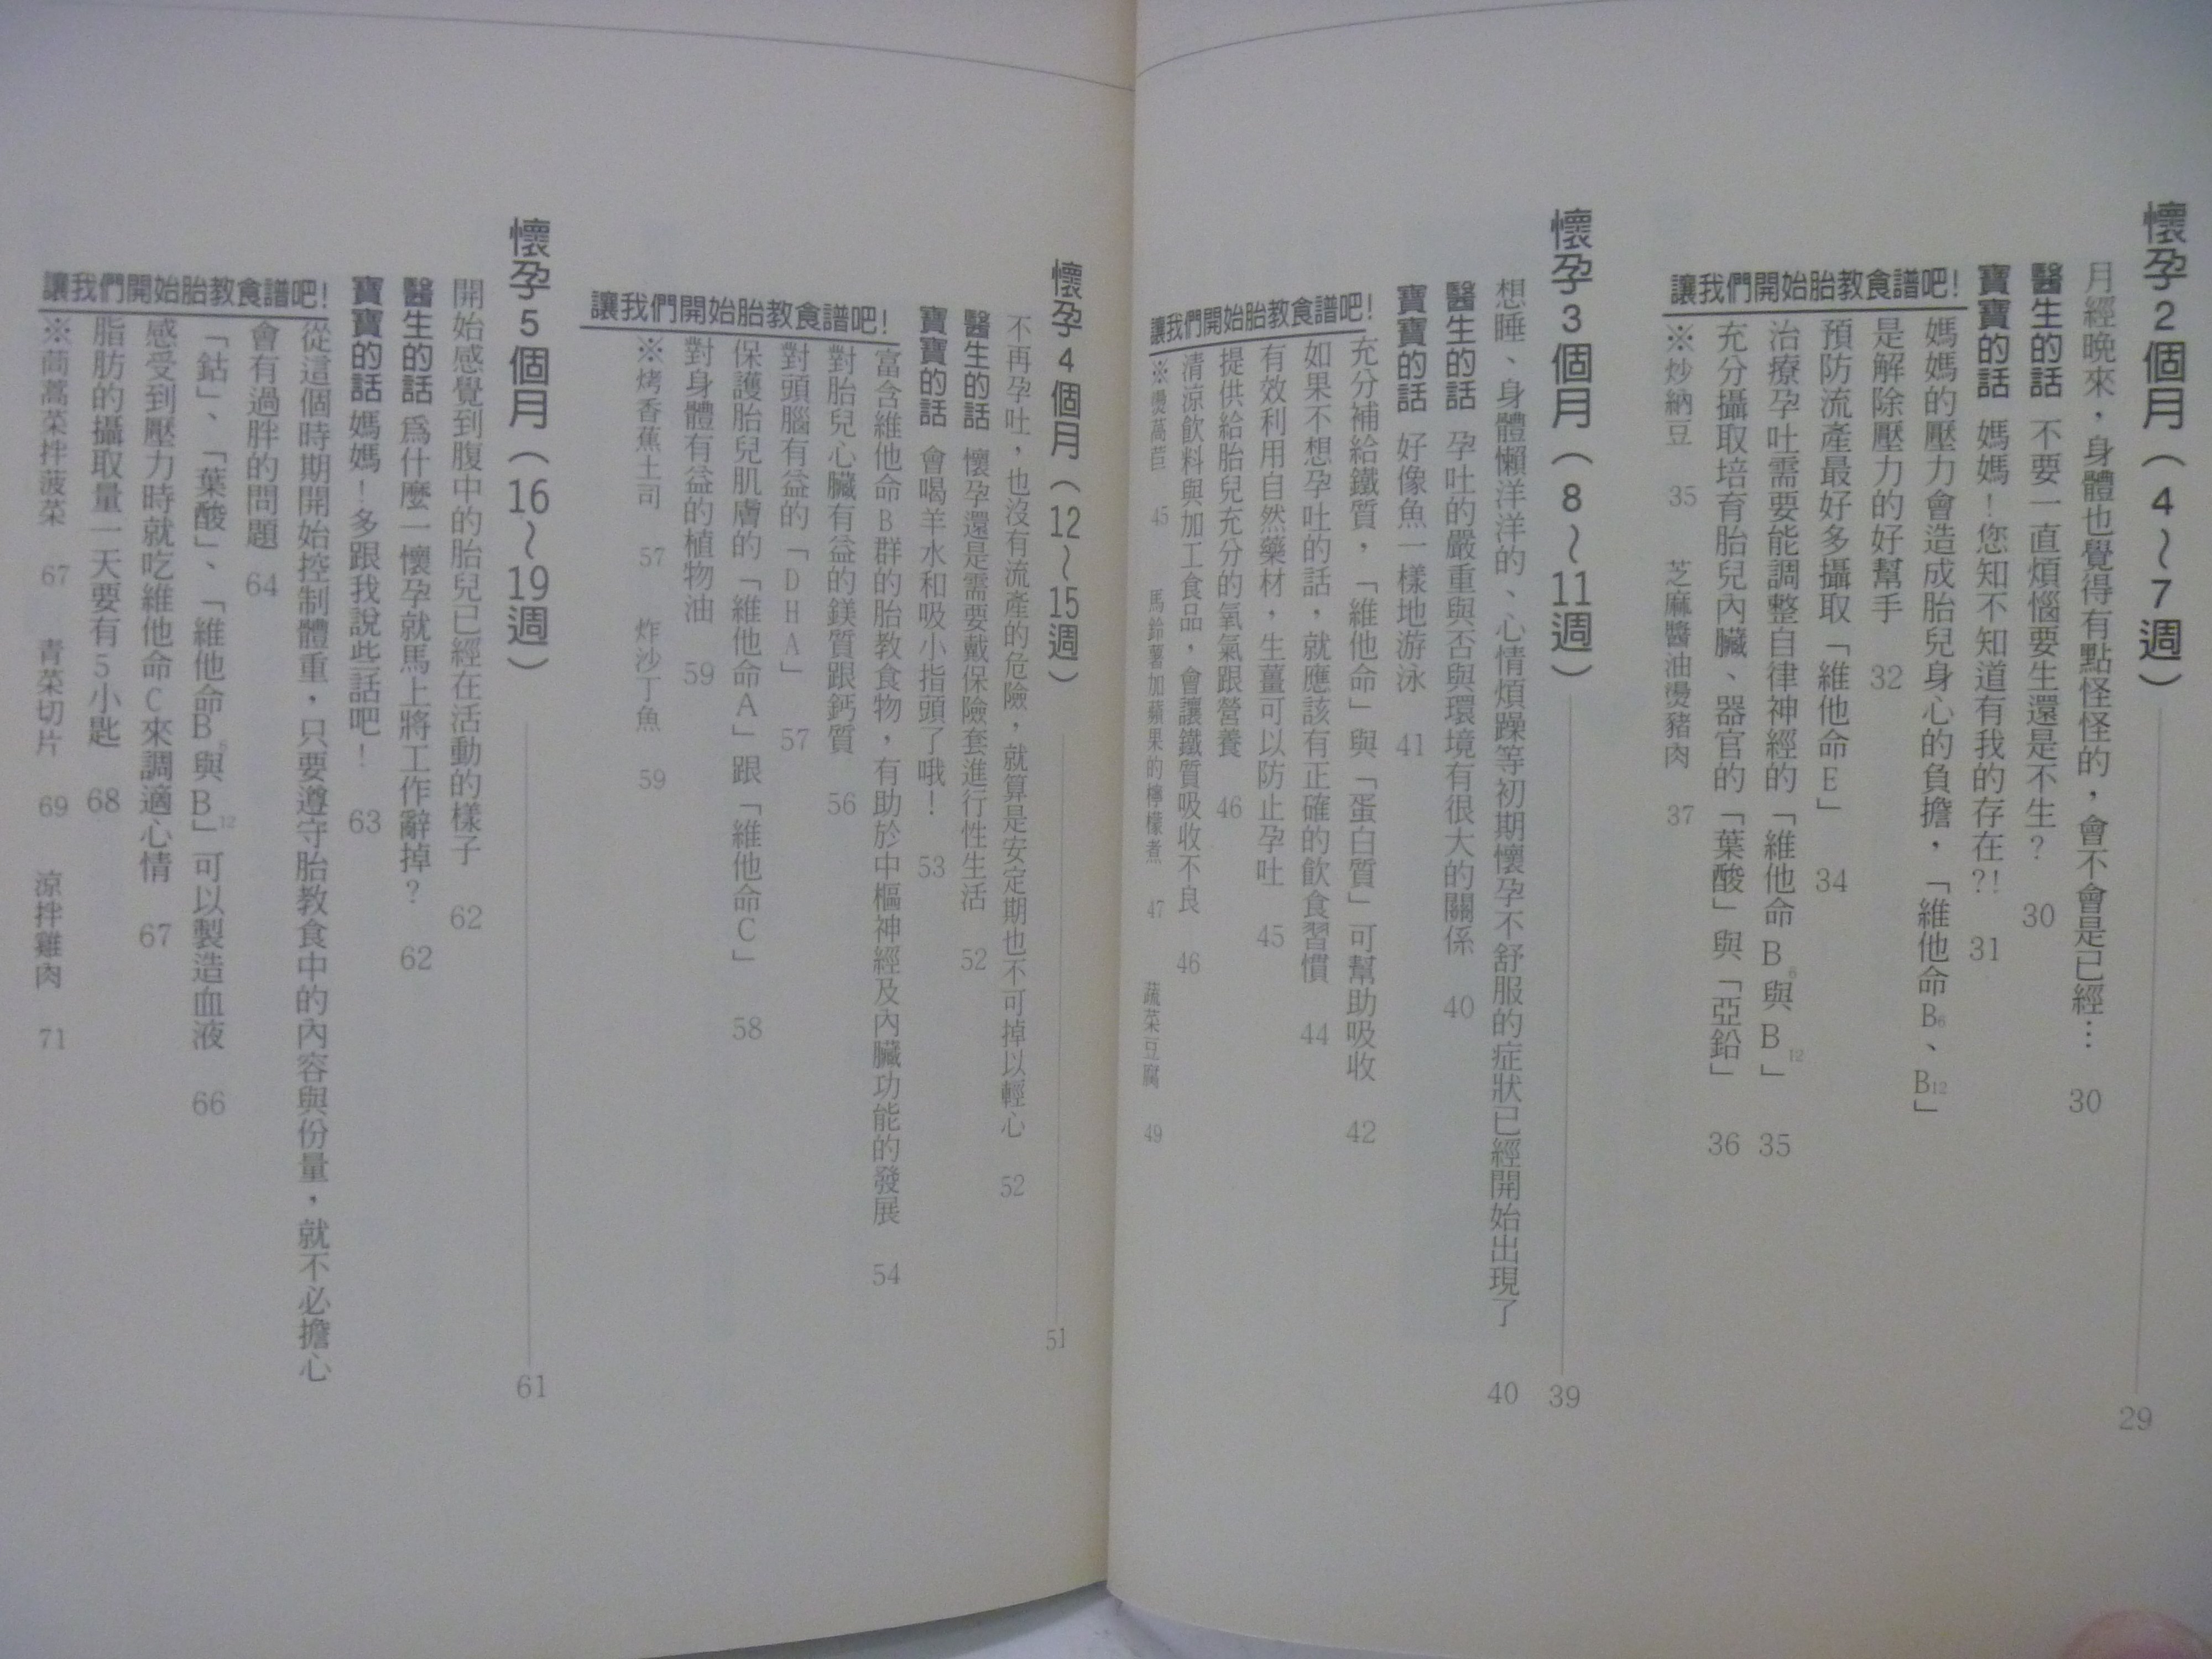 懷孕2個月（4～7週） 29
月經晚來，身體也覺得有點怪怪的，會不會是已經… 30
醫生的話 不要一直煩惱要生還是不生？ 30
寶寶的話 媽媽！您知不知道有我的存在?! 31
讓我們開始胎教食譜吧！
媽媽的壓力會造成胎兒身心的負擔，「維他命B6、B12」
是解除壓力的好幫手 32
預防流產最好多攝取「維他命E」 34
治療孕吐需要能調整自律神經的「維他命B6與B12」 35
充分攝取培育胎兒內臟、器官的「葉酸」與「亞鉛」 36
※炒納豆 35 芝麻醬油燙豬肉 37
懷孕3個月（8～11週） 39
想睡、身體懶洋洋的、心情煩躁等初期懷孕不舒服的症狀已經開始出現了 40
醫生的話 孕吐的嚴重與否與環境有很大的關係 40
寶寶的話 好像魚一樣地游泳 41
讓我們開始胎教食譜吧！
充分補給鐵質，「維他命」與「蛋白質」可幫助吸收 42
如果不想孕吐的話，就應該有正確的飲食習慣 44
有效利用自然藥材，生薑可以防止孕吐 45
提供給胎兒充分的氧氣跟營養 46
清涼飲料與加工食品，會讓鐵質吸收不良 46
※燙萵苣 45 馬鈴薯加蘋果的檸檬煮 47 蔬菜豆腐 49
懷孕4個月（12～15週） 51
不再孕吐，也沒有流產的危險，就算是安定期也不可掉以輕心 52
醫生的話 懷孕還是需要戴保險套進行性生活 52
寶寶的話 會喝羊水和吸小指頭了哦！ 53
讓我們開始胎教食譜吧！
富含維他命B群的胎教食物，有助於中樞神經及內臟功能的發展 54
對胎兒心臟有益的鎂質跟鈣質 56
對頭腦有益的「DHA」 57
保護胎兒肌膚的「維他命A」跟「維他命C」 58
對身體有益的植物油 59
※烤香蕉土司 57 炸沙丁魚 59
懷孕5個月（16～19週） 61
開始感覺到腹中的胎兒已經在活動的樣子 62
醫生的話 為什麼一懷孕就馬上將工作辭掉？ 62
寶寶的話 媽媽！多跟我說些話吧！ 63
讓我們開始胎教食譜吧！
從這個時期開始控制體重，只要遵守胎教食中的內容與份量，就不必擔心
會有過胖的問題 64
「鈷」、「葉酸」、「維他命B6與B12」可以製造血液 66
感受到壓力時就吃維他命C來調適心情 67
脂肪的攝取量一天要有5小匙 68
※茼蒿菜拌菠菜 67 青菜切片 69 涼拌雞肉 71